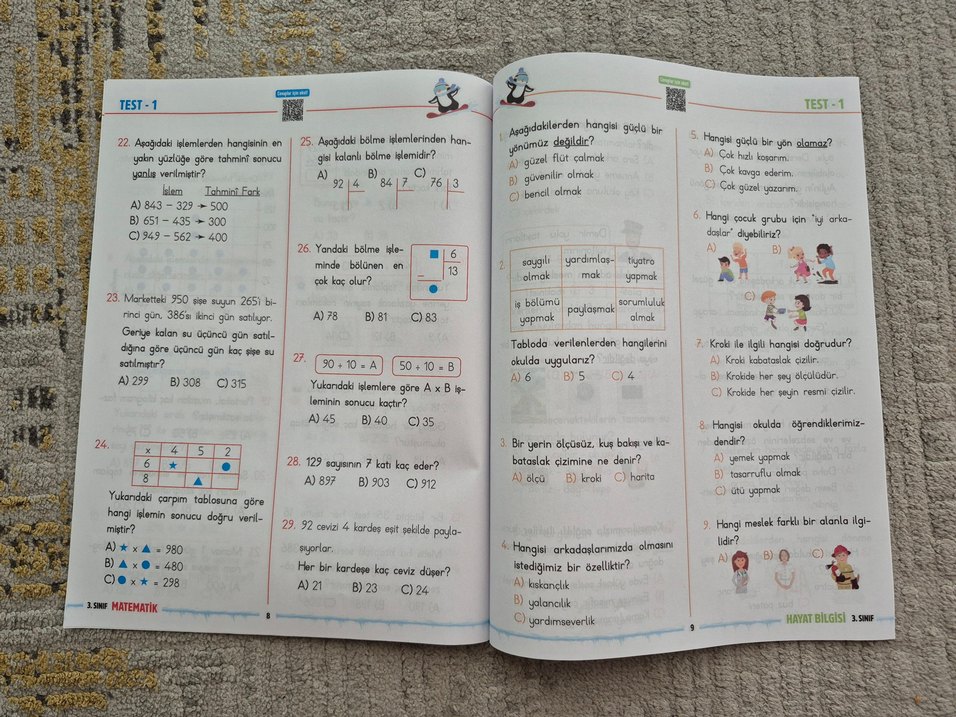 Cevaplar için okut!
TEST - 1
22. Aşağıdaki işlemlerden hangisinin en
yakın yüzlüğe göre tahminî sonucu
yanlış verilmiştir?
İşlem Tahminî Fark
A) 843 - 329 → 500
B) 651 - 435 → 300
C) 949 - 562 → 400
23. Marketteki 950 şişe suyun 265'i bi-
rinci gün, 386'sı ikinci gün satılıyor.
Geriye kalan su üçüncü gün satıl-
dığına göre üçüncü gün kaç şişe su
satılmıştır?
A) 299 B) 308 C) 315
24.
x 4 5 2
6 ★ ●
8 ▲
Yukarıdaki çarpım tablosuna göre
hangi işlemin sonucu doğru veril-
miştir?
A) ★ x ▲ = 980
B) ▲ x ● = 480
C) ● x ★ = 298
25. Aşağıdaki bölme işlemlerinden han-
gisi kalanlı bölme işlemidir?
A) B) C)
92 4 84 7 76 3
26. Yandaki bölme işle-
minde bölünen en
çok kaç olur?
■ 6
- 13
●
A) 78 B) 81 C) 83
27.
90 ÷ 10 = A 50 ÷ 10 = B
Yukarıdaki işlemlere göre A x B iş-
leminin sonucu kaçtır?
A) 45 B) 40 C) 35
28. 129 sayısının 7 katı kaç eder?
A) 897 B) 903 C) 912
29. 92 cevizi 4 kardeş eşit şekilde payla-
şıyorlar.
Her bir kardeşe kaç ceviz düşer?
A) 21 B) 23 C) 24
3. SINIF MATEMATİK
8
Cevaplar için okut!
TEST - 1
1. Aşağıdakilerden hangisi güçlü bir
yönümüz değildir?
A) güzel flüt çalmak
B) güvenilir olmak
C) bencil olmak
2.
saygılı olmak
yardımlaş-
mak
tiyatro
yapmak
iş bölümü
yapmak
paylaşmak
sorumluluk
almak
Tabloda verilenlerden hangilerini
okulda uygularız?
A) 6 B) 5 C) 4
3. Bir yerin ölçüsüz, kuş bakışı ve ka-
bataslak çizimine ne denir?
A) ölçü B) kroki C) harita
4. Hangisi arkadaşlarımızda olmasını
istediğimiz bir özelliktir?
A) kıskançlık
B) yalancılık
C) yardımseverlik
5. Hangisi güçlü bir yön olamaz?
A) Çok hızlı koşarım.
B) Çok kavga ederim.
C) Çok güzel yazarım.
6. Hangi çocuk grubu için "iyi arka-
daşlar" diyebiliriz?
A) B)
C)
7. Kroki ile ilgili hangisi doğrudur?
A) Kroki kabataslak çizilir.
B) Krokide her şey ölçülüdür.
C) Krokide her şeyin resmi çizilir.
8. Hangisi okulda öğrendiklerimiz-
dendir?
A) yemek yapmak
B) tasarruflu olmak
C) ütü yapmak
9. Hangi meslek farklı bir alanla ilgi-
lidir?
A) B) C)
9
HAYAT BİLGİSİ 3. SINIF